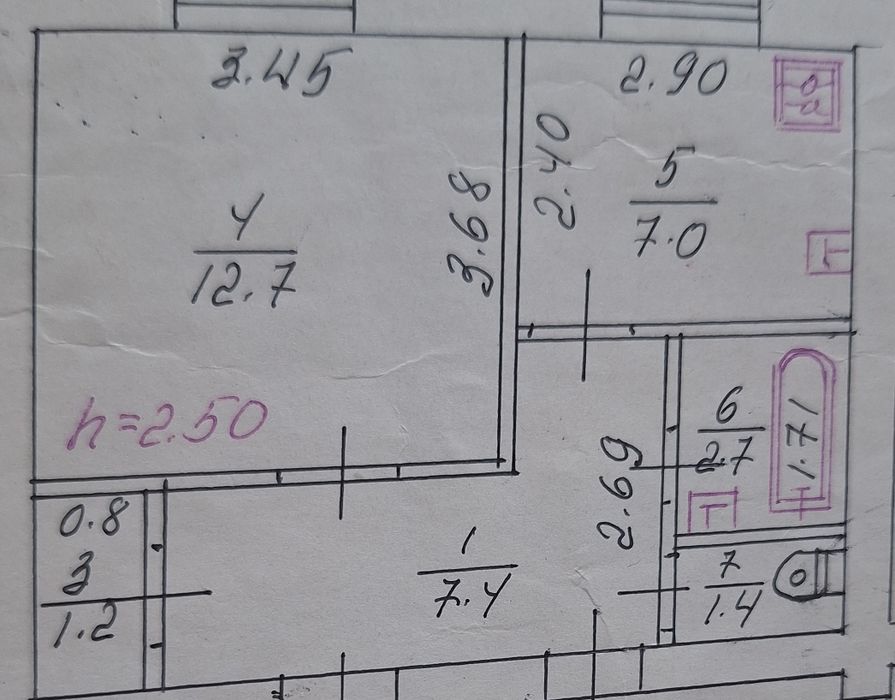 3.45
2.90
2.40
5
7.0
3.68
4
12.7
Г
h=2.50
6
2.7
1.71
2.69
Г
0.8
3
1.2
1
7.4
7
1.4